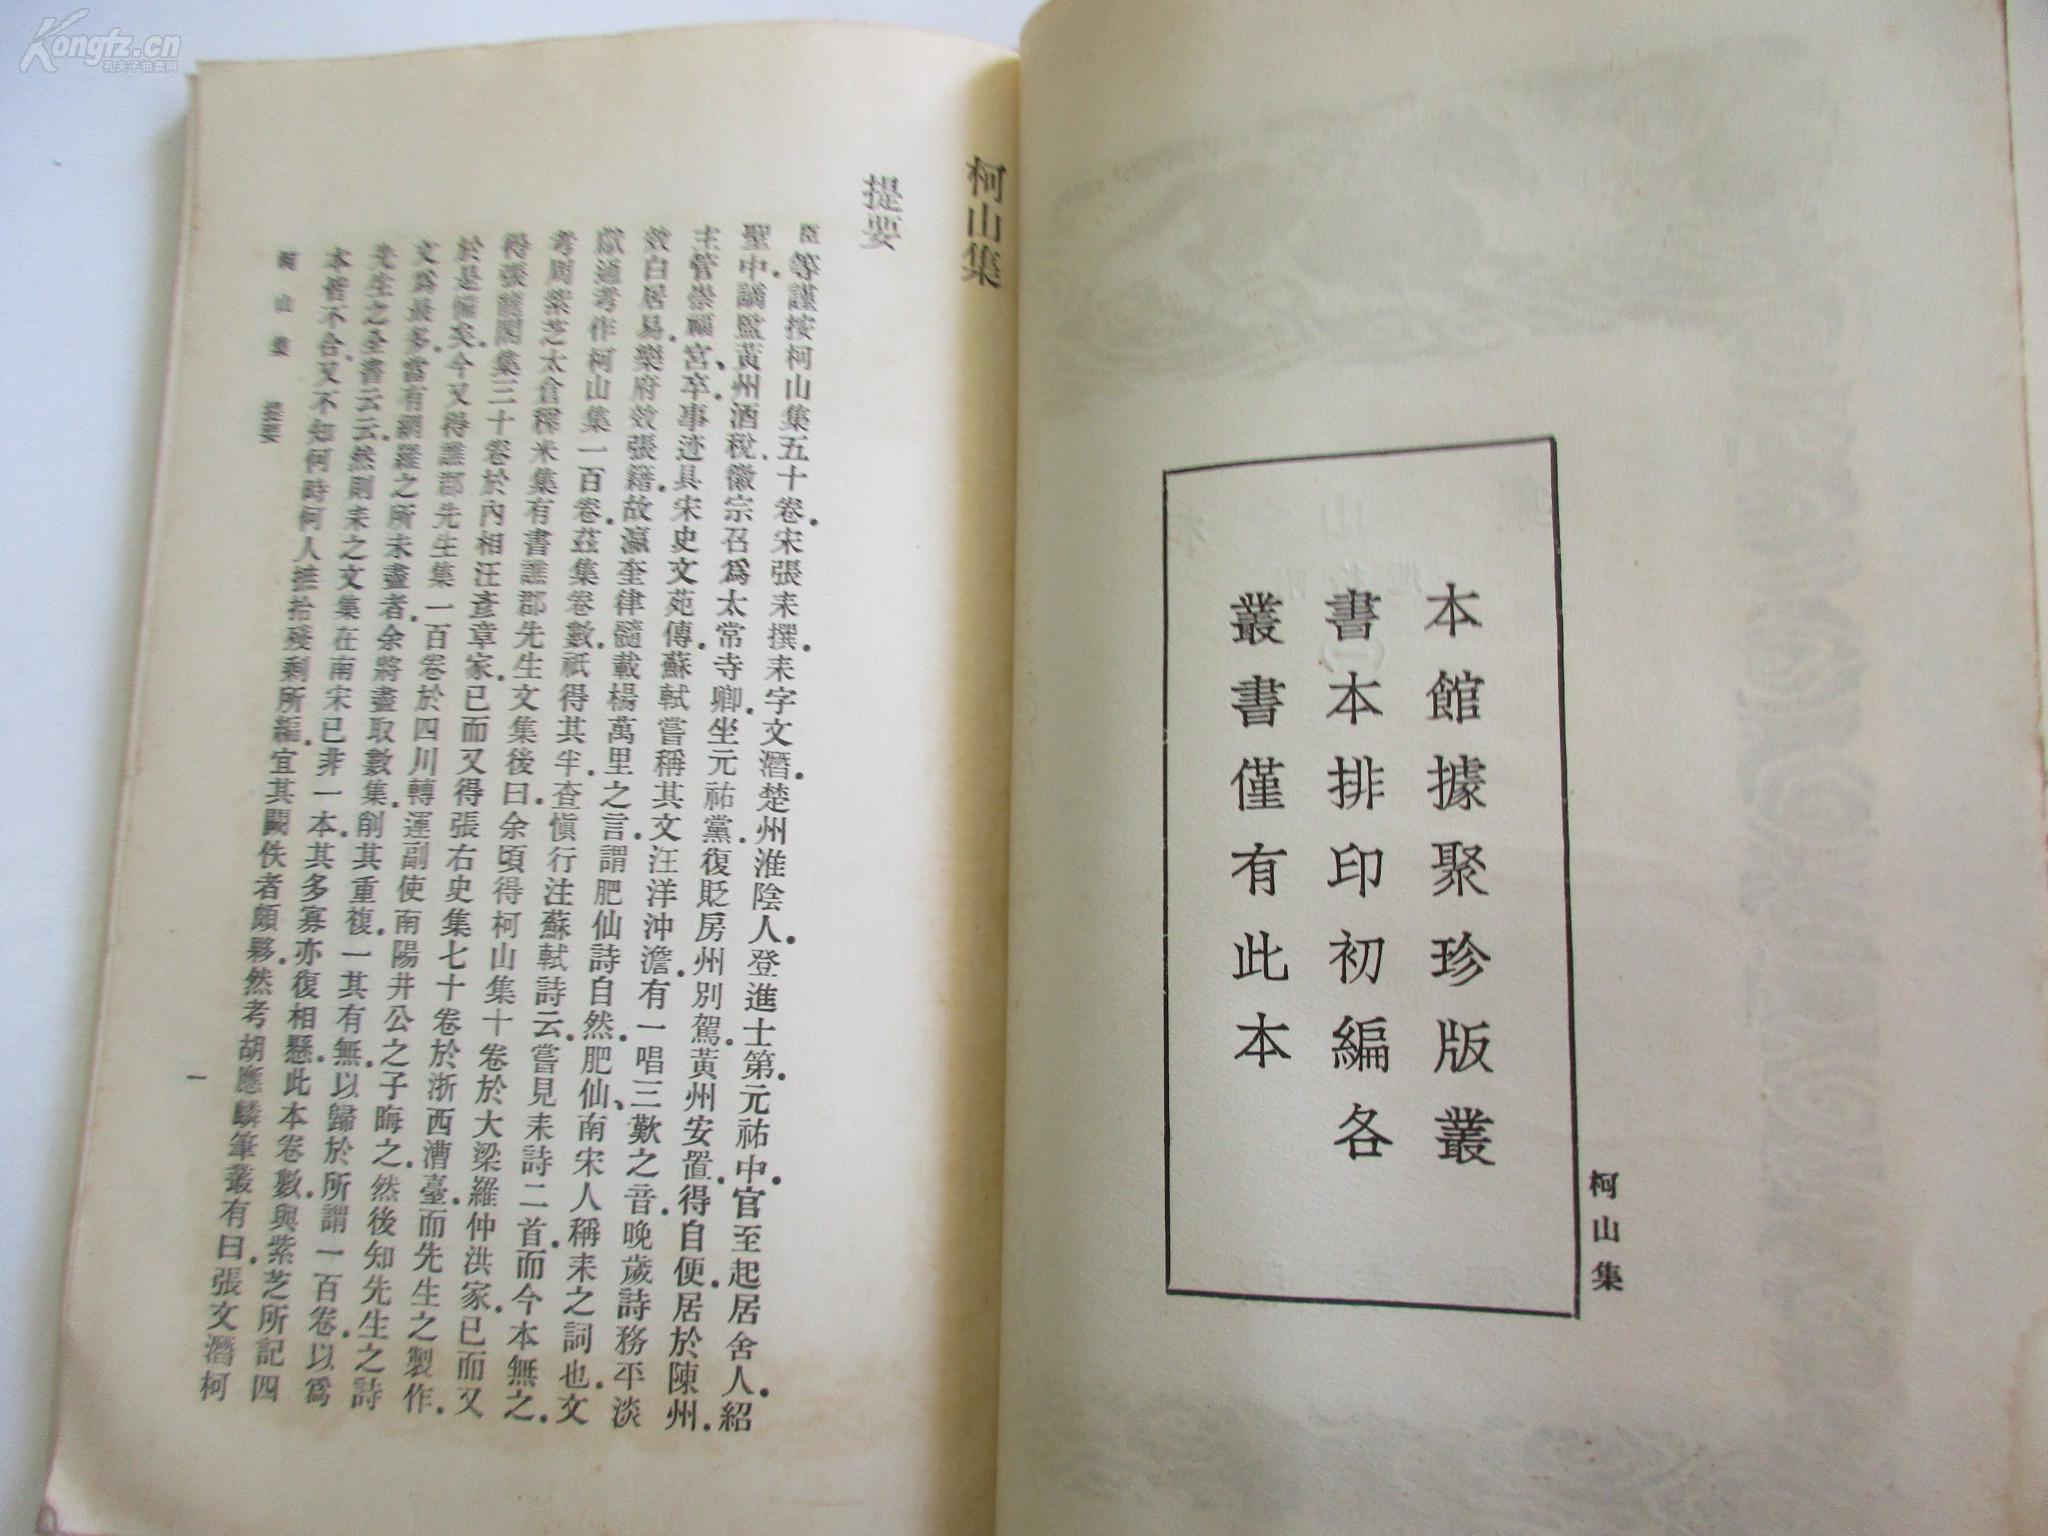 Kongfz.cn
孔夫子拍卖网
本館據聚珍版叢
書本排印初編各
叢書僅有此本
柯山集
柯山集
提要
臣等謹按柯山集五十卷宋張耒撰耒字文潛楚州淮陰人登進士第元祐中官至起居舍人紹
聖中謫監黃州酒稅徽宗召爲太常寺卿坐元祐黨復貶房州別駕黃州安置得自便居於陳州
主管崇福宮卒事迹具宋史文苑傳蘇軾嘗稱其文汪洋沖澹有一唱三歎之音晚歲詩務平淡
效白居易樂府效張籍故瀛奎律髓載楊萬里之言謂肥仙詩自然肥仙南宋人稱耒之詞也文
獻通考作柯山集一百卷茲集卷數祇得其半查愼行注蘇軾詩云嘗見耒詩二首而今本無之
考周紫芝太倉稊米集有書譙郡先生文集後曰余頃得柯山集十卷於大梁羅仲洪家已而又
得張龍閣集三十卷於內相汪彥章家已而又得張右史集七十卷於浙西漕臺而先生之製作
於是備矣今又得譙郡先生集一百卷於四川轉運副使南陽井公之子晦之然後知先生之詩
文爲最多當有網羅之所未盡者余將盡取數集削其重複一其有無以歸於所謂一百卷以爲
先生之全書云云然則耒之文集在南宋已非一本其多寡亦復相懸此本卷數與紫芝所記四
本皆不合又不知何時何人摭拾殘剩所編宜其闕佚者頗夥然考胡應麟筆叢有曰張文潛柯
柯山集 提要
一